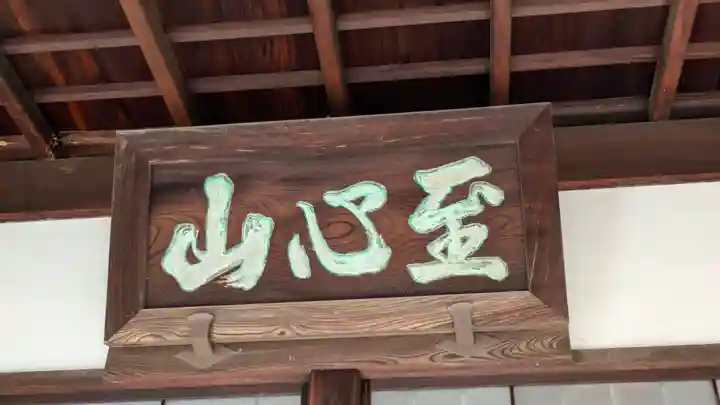 至心山